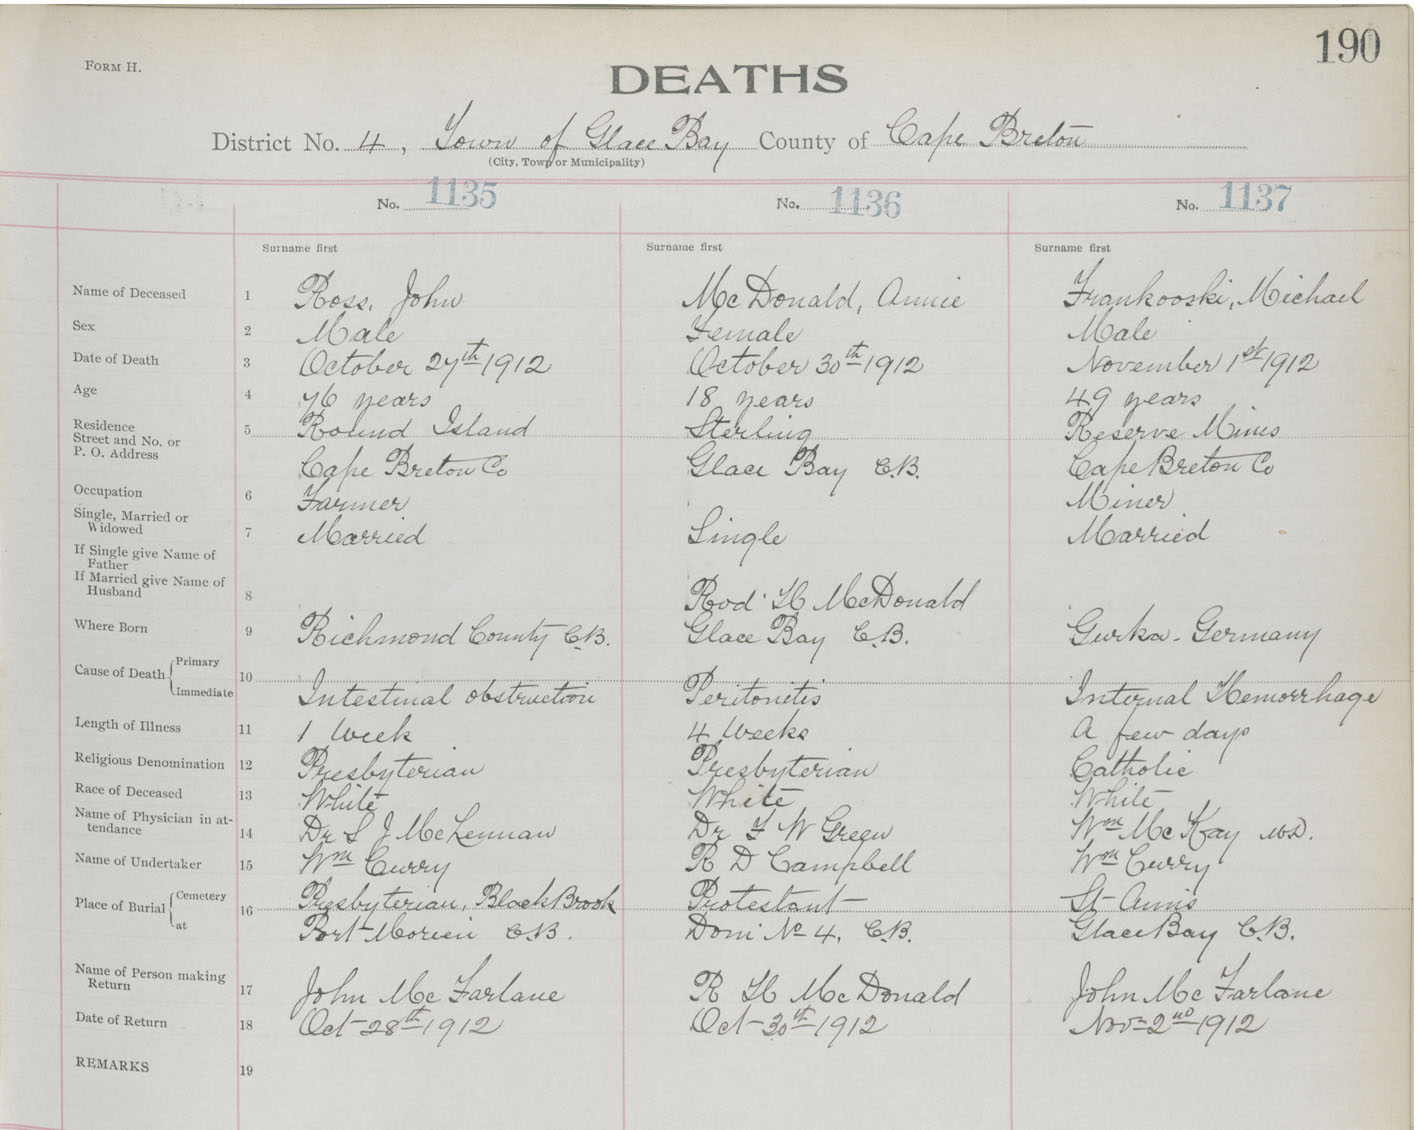 190
FORM H.
DEATHS
District No. 4, Town of Glace Bay County of Cape Breton
(City, Town or Municipality)
No. 1135 No. 1136 No. 1137
Surname first Surname first Surname first
Name of Deceased 1 Ross, John McDonald, Annie Frankooski, Michael
Sex 2 Male Female Male
Date of Death 3 October 27th 1912 October 30th 1912 November 1st 1912
Age 4 76 years 18 years 49 years
Residence
Street and No. or 5 Round Island Sterling Reserve Mines
P. O. Address
Cape Breton Co Glace Bay C.B. Cape Breton Co
Occupation 6 Farmer Miner
Single, Married or
Widowed 7 Married Single Married
If Single give Name of
Father
If Married give Name of
Husband 8 Rod. H McDonald
Where Born 9 Richmond County C.B. Glace Bay C.B. Gurka - Germany
Cause of Death Primary
10
Immediate Intestinal obstruction Peritonitis Internal Hemorrhage
Length of Illness 11 1 Week 4 Weeks A few days
Religious Denomination 12 Presbyterian Presbyterian Catholic
Race of Deceased 13 White White White
Name of Physician in at-
tendance 14 Dr S J McLennan Dr F W Green Wm McKay M.D.
Name of Undertaker 15 Wm Curry R D Campbell Wm Curry
Place of Burial Cemetery 16 Presbyterian, Black Brook Protestant St Anns
at Port Morien C.B. Dom No 4, C.B. Glace Bay C.B.
Name of Person making
Return 17 John McFarlane R H McDonald John McFarlane
Date of Return 18 Oct 28th 1912 Oct 30th 1912 Nov 2nd 1912
REMARKS 19